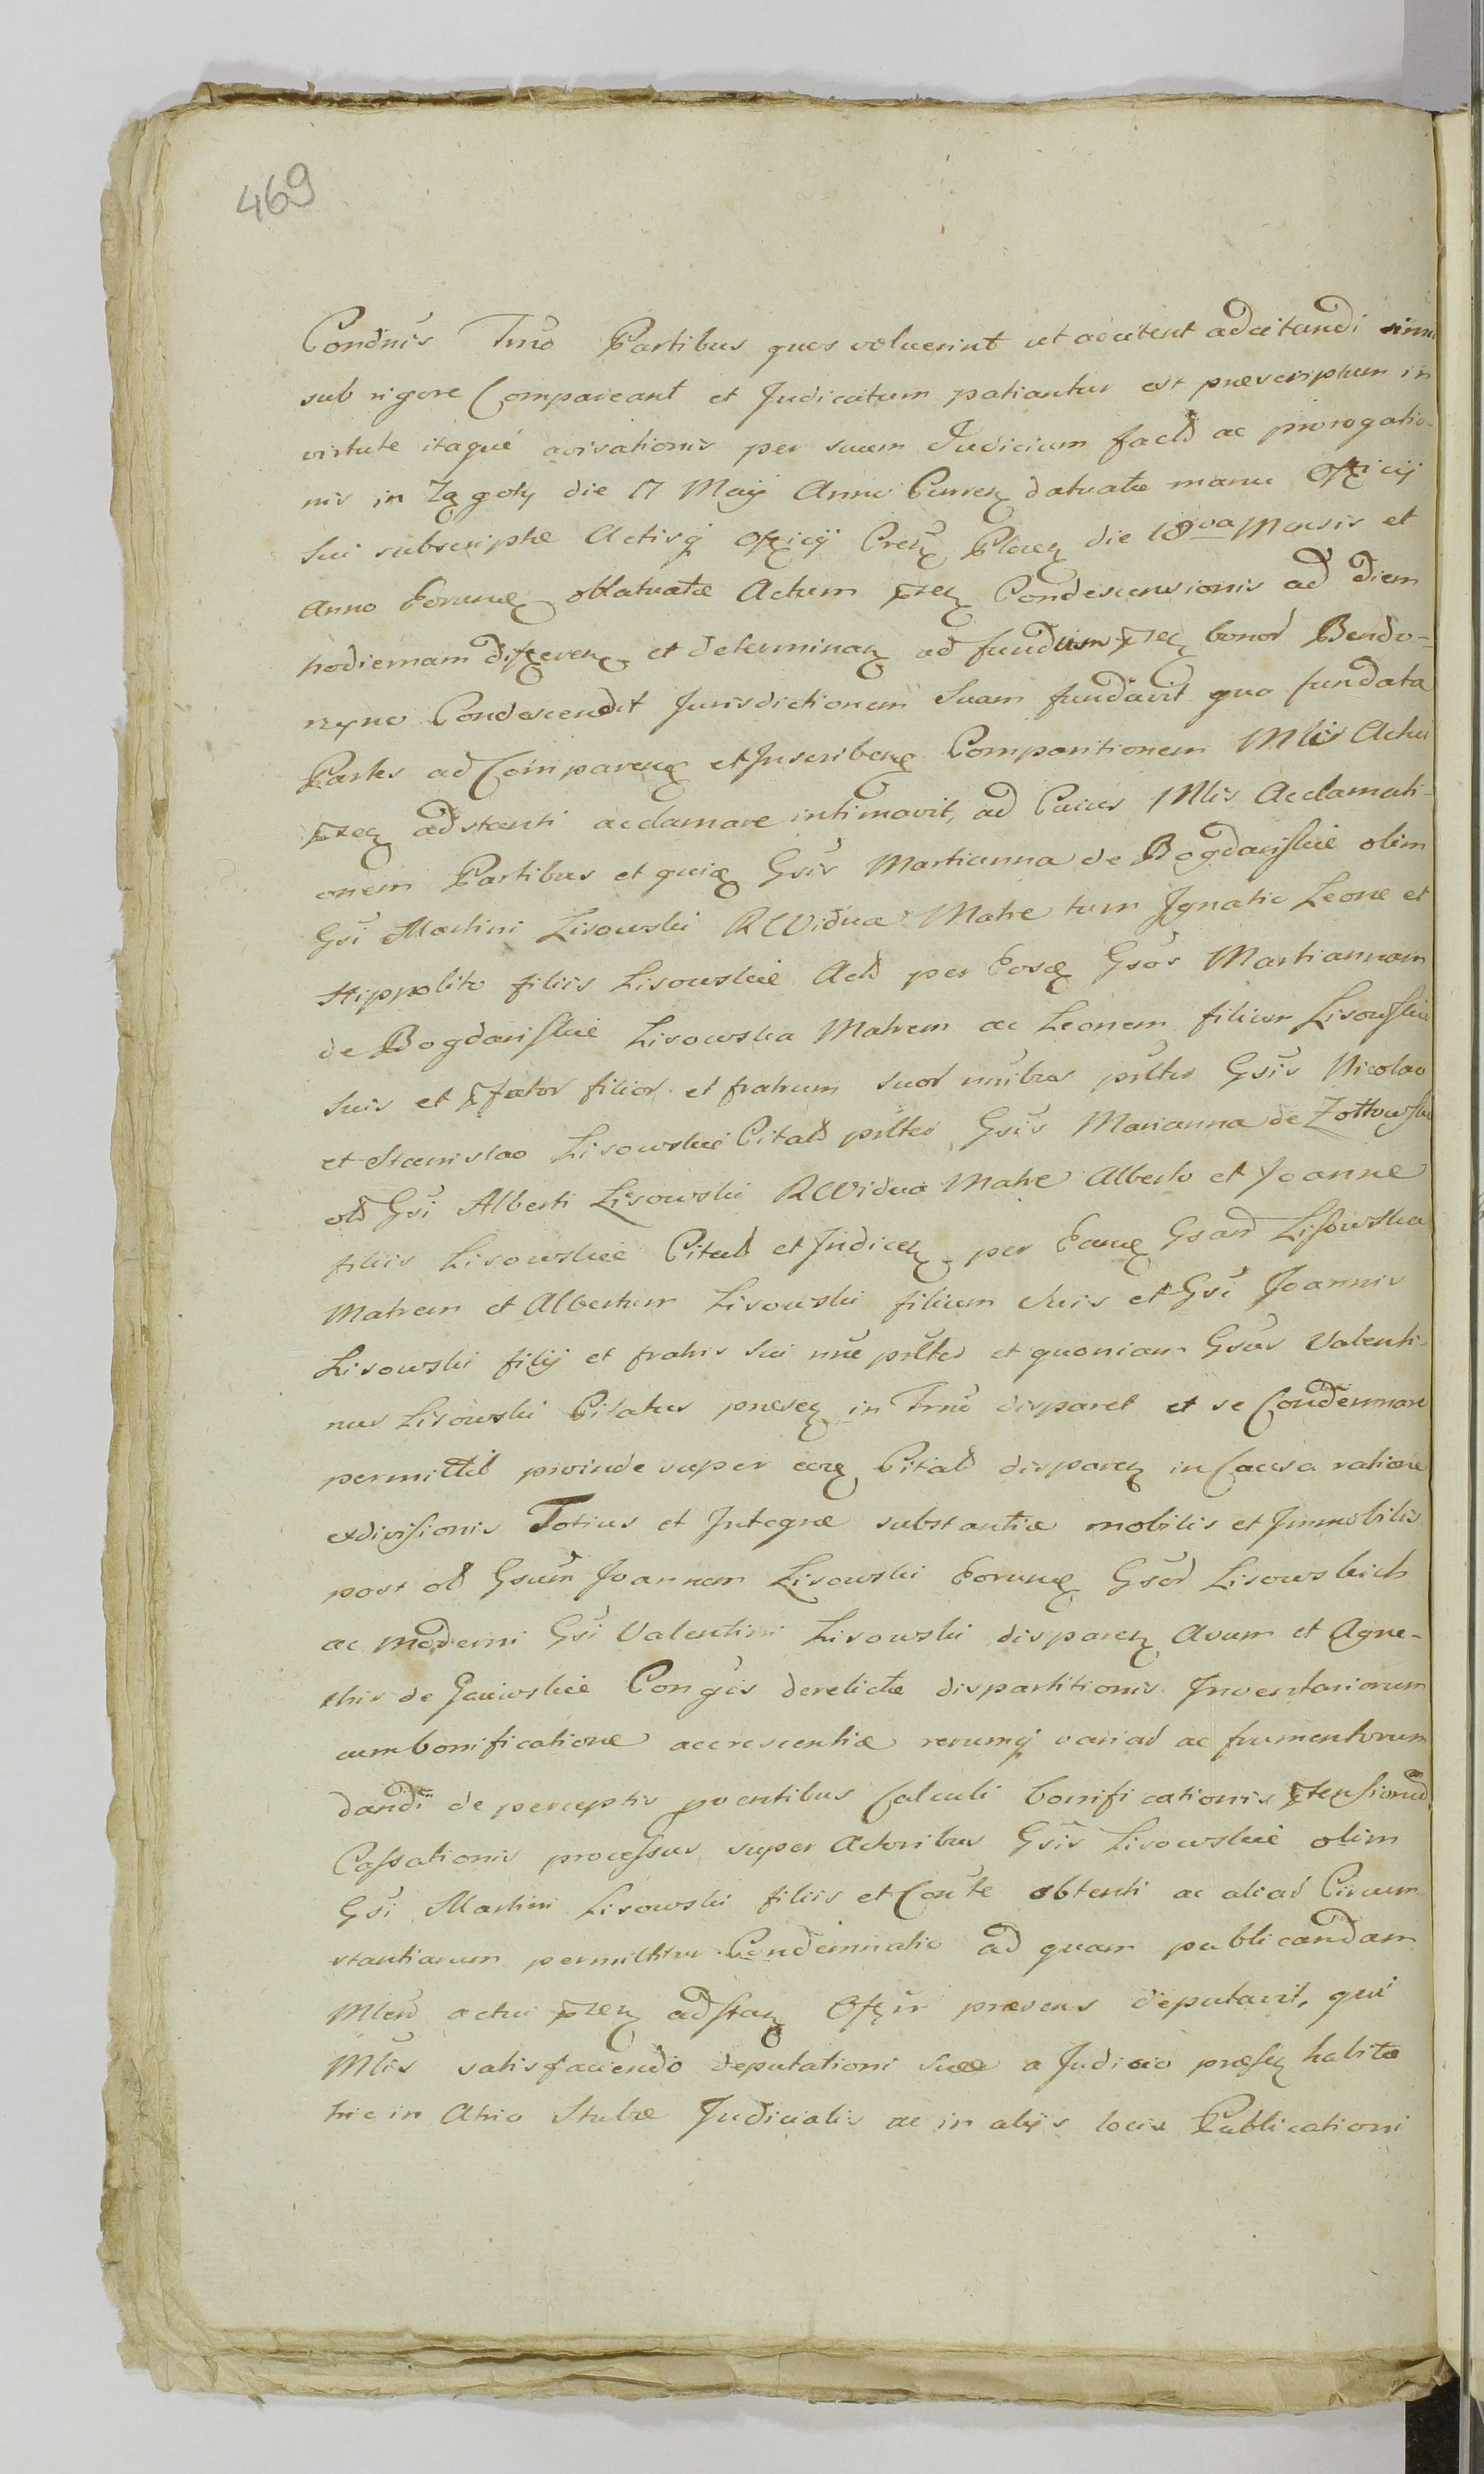 469
Condnis Tnno Partibus quos voluerint ut adcitent adcitandi
sub rigore Compareant et Judicatum patiantur est praescriptum in
virtute itaque avisationis per suum Judicium fact ac prorogatio-
nis in Zągoty die 17 Maij Anno Curren datuatae manu Officij
Sui subscriptae Actisq Officij Plocen die 18va Mensis et
Anno Eorunq oblatuatae Actum pren Condescensionis ad diem
hodiernam differen et determinan ad fundum pren bonor Bendo-
rzyno Condescendit Jurisdictionem Suam fundavit qua fundata
Partes ad Comparenq et Inscribenq Comparitionem Mlis Actui
pren adstanti acclamare intimavit, ad Cuius Mlis Acclamati-
onem Partibus et quiq Gsis Martianna de Bogdańskie olim
Gsi Martini Lisowski R Vidua Matre tum Ignatio Leone et
Hippolito filiis Lisowskie Act per Eosq Gsos Martiannam
de Bogdańskie Lisowska Matrem ac Leonem filium Lisowskie
suis et pfator filior et fratrum suor nnibus pnltes Gsis Nicolao
et Stanislao Lisowskie Citat pnltes Gsis Marianna de Zołtowskie
ol Gsi Alberti Lisowski R Vidua Matre Alberto et Joanne
filiis Lisowskie Citat et Judicen per Eanq Gsam Lisowska
Matrem et Albertum Lisowski filium suis et Gsi Joannis
Lisowski filij et fratris sui nne pnltes et quoniam Gsus Valenti-
nus Lisowski Citatus praesen in Tnno disparet et se Condemnare
permittit proinde super eoq Citat disparen in Causa ratione
exdivisionis Totius et Integrae substantiae mobilis et Immobilis
post ol Gsum Joannem Lisowski Eorunq Gsor Lisowskich
ac moderni Gsi Valentini Lisowski disparen Avum et Agne-
this de Conges derelictae dispartitionis Inventariorum
cum bonificatione accrescentiae rerumq variar ac frumentorum
dandi de perceptis pventibus Calculi bonificationis ptensionum
Cassationis processus super Actoribus Gsis Lisowskie olim
Gsi Martini Lisowski filiis et Conte obtenti ac aliar Circum-
stantiarum permittitur Condemnatio ad quam publicandam
Mlem actui pren adstan Offm praesens deputavit, qui
Mlis satisfaciendo deputationi suae a Judicio praesen habitae
hic in Atrio Stubae Judicialis ac in alijs locis Publicationi